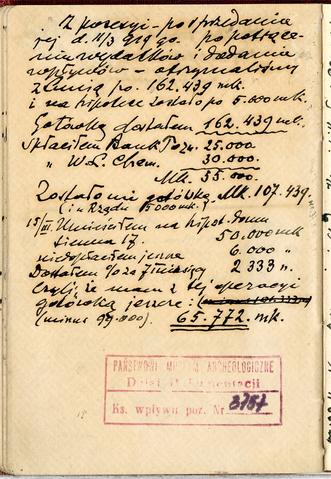 Z posesyi - po sprzedaniu
jej d. 11/3 919 go. po potrące-
niu wydatków i dodaniu
wpływów - otrzymaliśmy
z żoną po. 162.439 mk.
i na hipotece zostało po 5.000 mk.
Gotówką dostałem 162.439 mk.
Spłaciłem Bank Pozn. 25.000
" W. S. Chem. 30.000.
Mk. 55.000.
Zostało mi gotówką Mk. 107.439.
(i u Rządu 5000 mk.)
15/III. Umieściłem na hipot. domu
Sienna 17. 50.000 mk.
niedopłaciłem jeszcze 6.000 "
Dostałem % za 7 miesięcy 2 333 n.
Czyli, że mam z tej operacyi
gotówką jeszcze:
(minus 99.000). 65.772. mk.
PAŃSTWOWE MUZEUM ARCHEOLOGICZNE
Dział Dokumentacji
Ks. wpływu poz. Nr 3757